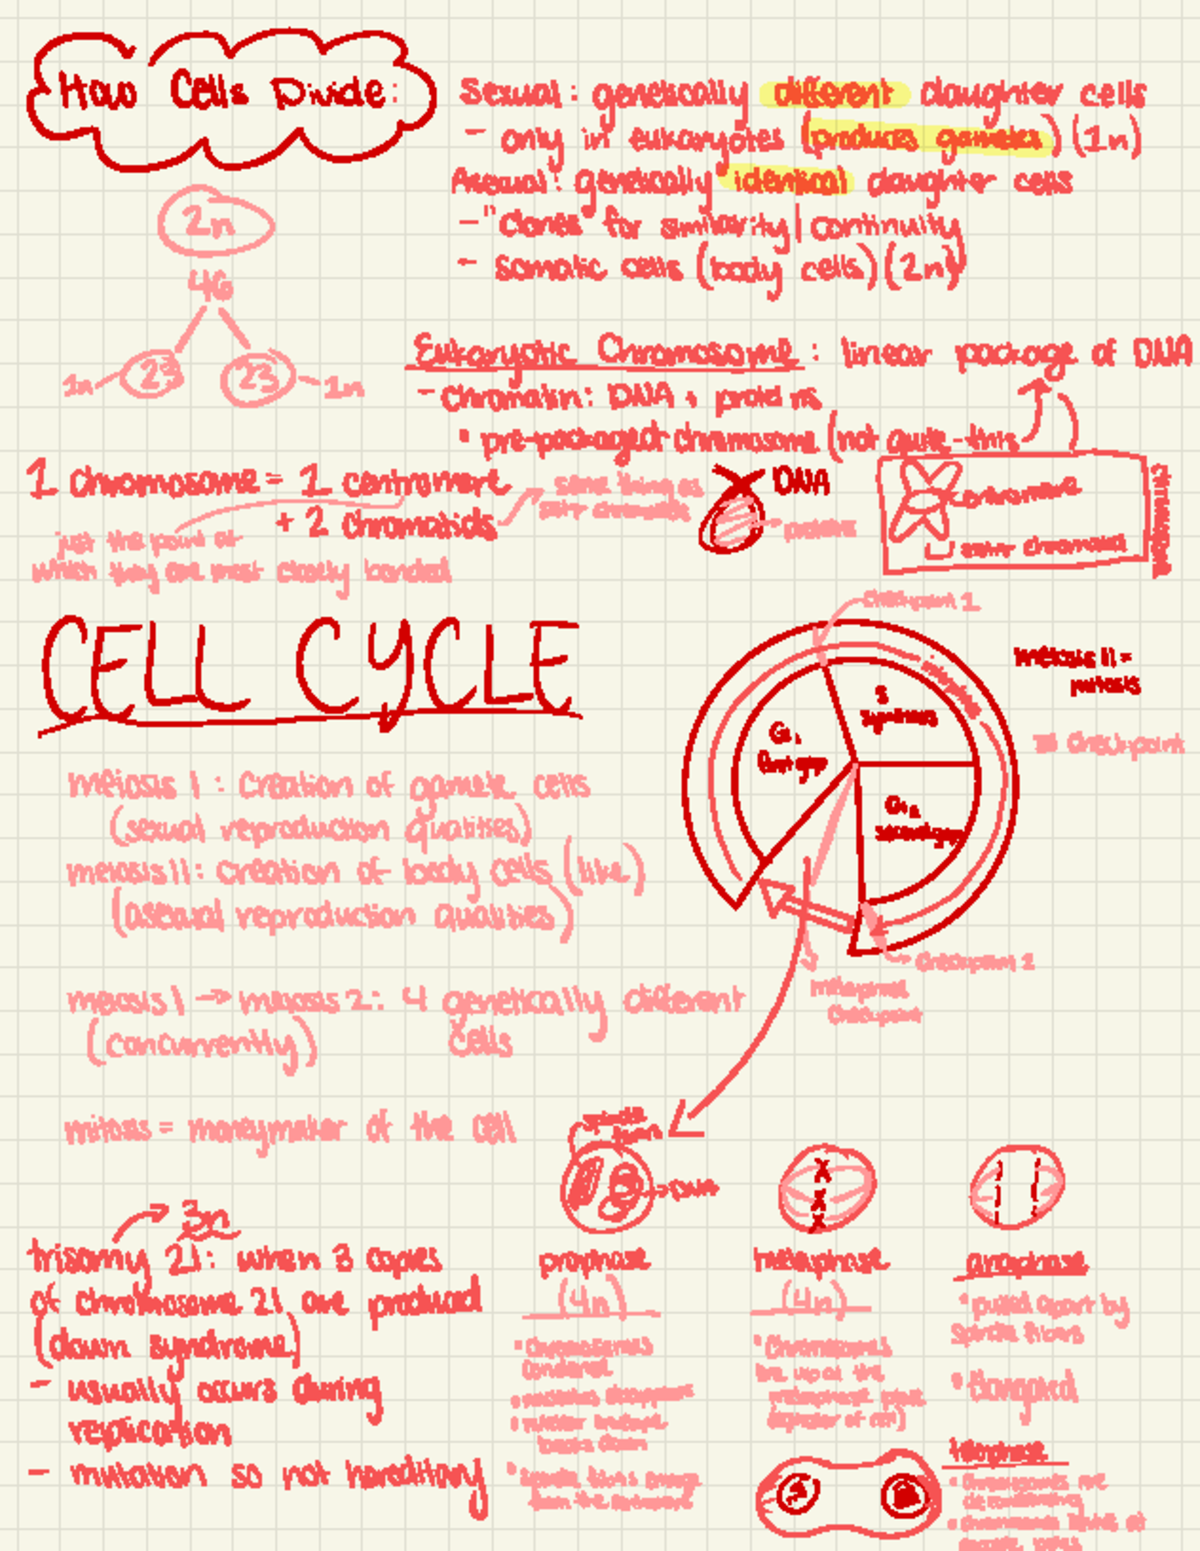 How Cells Divide:
Sexual: genetically different daughter cells
- only in eukaryotes (produces gametes) (1n)
Asexual: genetically identical daughter cells
- "clones" for similarity | continuity
- somatic cells (body cells) (2n)
2n
46
1n 23 23 1n
Eukaryotic Chromosome: linear package of DNA
- Chromatin: DNA + proteins
• pre-packaged chromosome (not quite this)
1 chromosome = 1 centromere
+ 2 chromatids
same thing as
sister chromatids
just the point at
which they are most closely bonded
DNA
proteins
centromere
sister chromatid
chromosome
CELL CYCLE
checkpoint 1
interphase
S
synthesis
G1
first gap
G2
second gap
meiosis II =
mitosis
checkpoint
checkpoint 2
metaphase
checkpoint
meiosis I: Creation of gamete cells
(sexual reproduction qualities)
meiosis II: creation of body cells (like)
(asexual reproduction qualities)
meiosis 1 → meiosis 2: 4 genetically different
(concurrently) cells
mitosis = moneymaker of the cell
spindle
DNA
3n
trisomy 21: when 3 copies
of chromosome 21 are produced
(down syndrome)
- usually occurs during
replication
- mutation so not hereditary
prophase
(4n)
• Chromosomes
condense
• nucleolus disappears
• nuclear envelope
breaks down
• spindle fibers emerge
from the centrosomes
metaphase
(4n)
• Chromosomes
line up at the
metaphase plate
(equator of cell)
anaphase
• pulled apart by
spindle fibers
• Elongated
telophase
• Chromosomes are
decondensing
• chromosomes